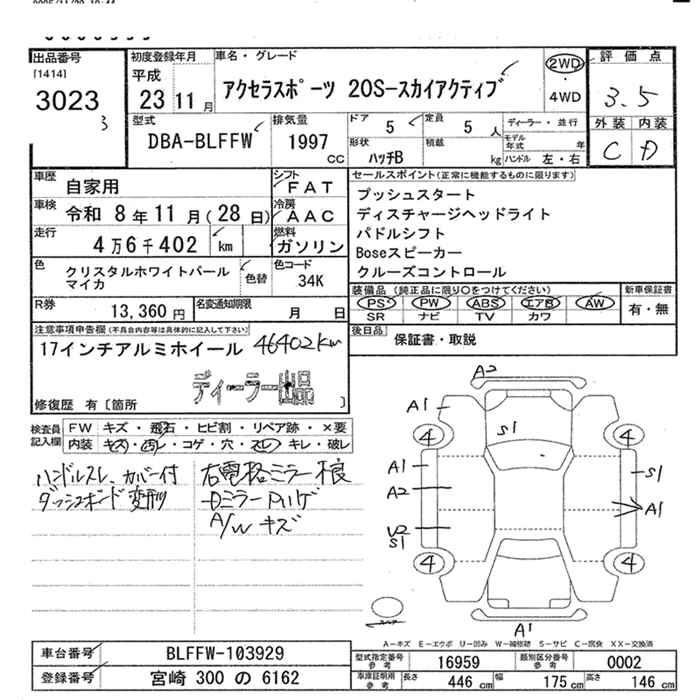 出品番号
[1414]
3023
3
初度登録年月
平成
23 11 月
車名・グレード
アクセラスポーツ 20S-スカイアクティブ
2WD
・
4WD
評価点
3.5
外装 内装
C D
型式
DBA-BLFFW
排気量
1997
CC
ドア
5
定員
5 人
形状
ハッチB
積載
kg
ディーラー・並行
モデル年式 年
ハンドル 左・右
車歴 自家用
車検 令和 8 年 11 月(28 日)
走行 4 万 6 千 402 km
シフト
FAT
冷房
AAC
燃料
ガソリン
色
クリスタルホワイトパール
マイカ
色替
色コード
34K
R券 13,360 円
名変通知期限
月 日
セールスポイント(正常に機能するものに限ります)
プッシュスタート
ディスチャージヘッドライト
パドルシフト
Boseスピーカー
クルーズコントロール
装備品(純正品に限り○をつけてください)
PS PW ABS エア自 AW
SR ナビ TV カワ
新車保証書
有・無
後日品
保証書・取説
注意事項申告欄(不具合内容等は具体的に記入して下さい)
17インチアルミホイール 46402km
ディーラー出品
修復歴 有〔箇所 〕
検査員記入欄
FW キズ・飛石・ヒビ割・リペア跡・×要
内装 キズ・汚レ・コゲ・穴・スレ・キレ・破レ
ハンドルスレ、カバー付
ダッシュボード変形
右電格ミラー不良
A/W キズ
A2
A1
S1
4
4
A1
A2
S1
A1
V2
S1
4
4
A1
A-キズ E-エクボ U-凹み W-補修跡 S-サビ C-腐食 XX-交換済
車台番号 BLFFW-103929
登録番号 宮崎 300 の 6162
型式指定番号
参考
16959
類別区分番号
参考
0002
車庫証明用
参考
長さ 446 cm
幅 175 cm
高さ 146 cm